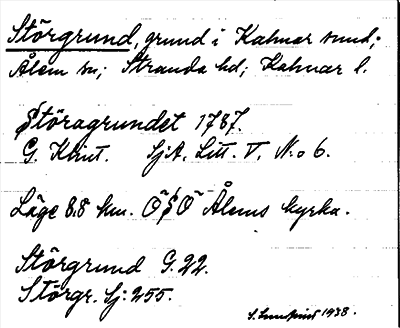 Störgrund, grund i Kalmar sund;
Ålem sn; Stranda hd; Kalmar l.
Störagrundet 1787.
G. Klint. SjA, Litt. V, No 6.
Läge 8.8 km. OSO Ålems kyrka.
Störgrund G. 22.
Störgr. Sj: 255.
S. Lundqvist 1938.